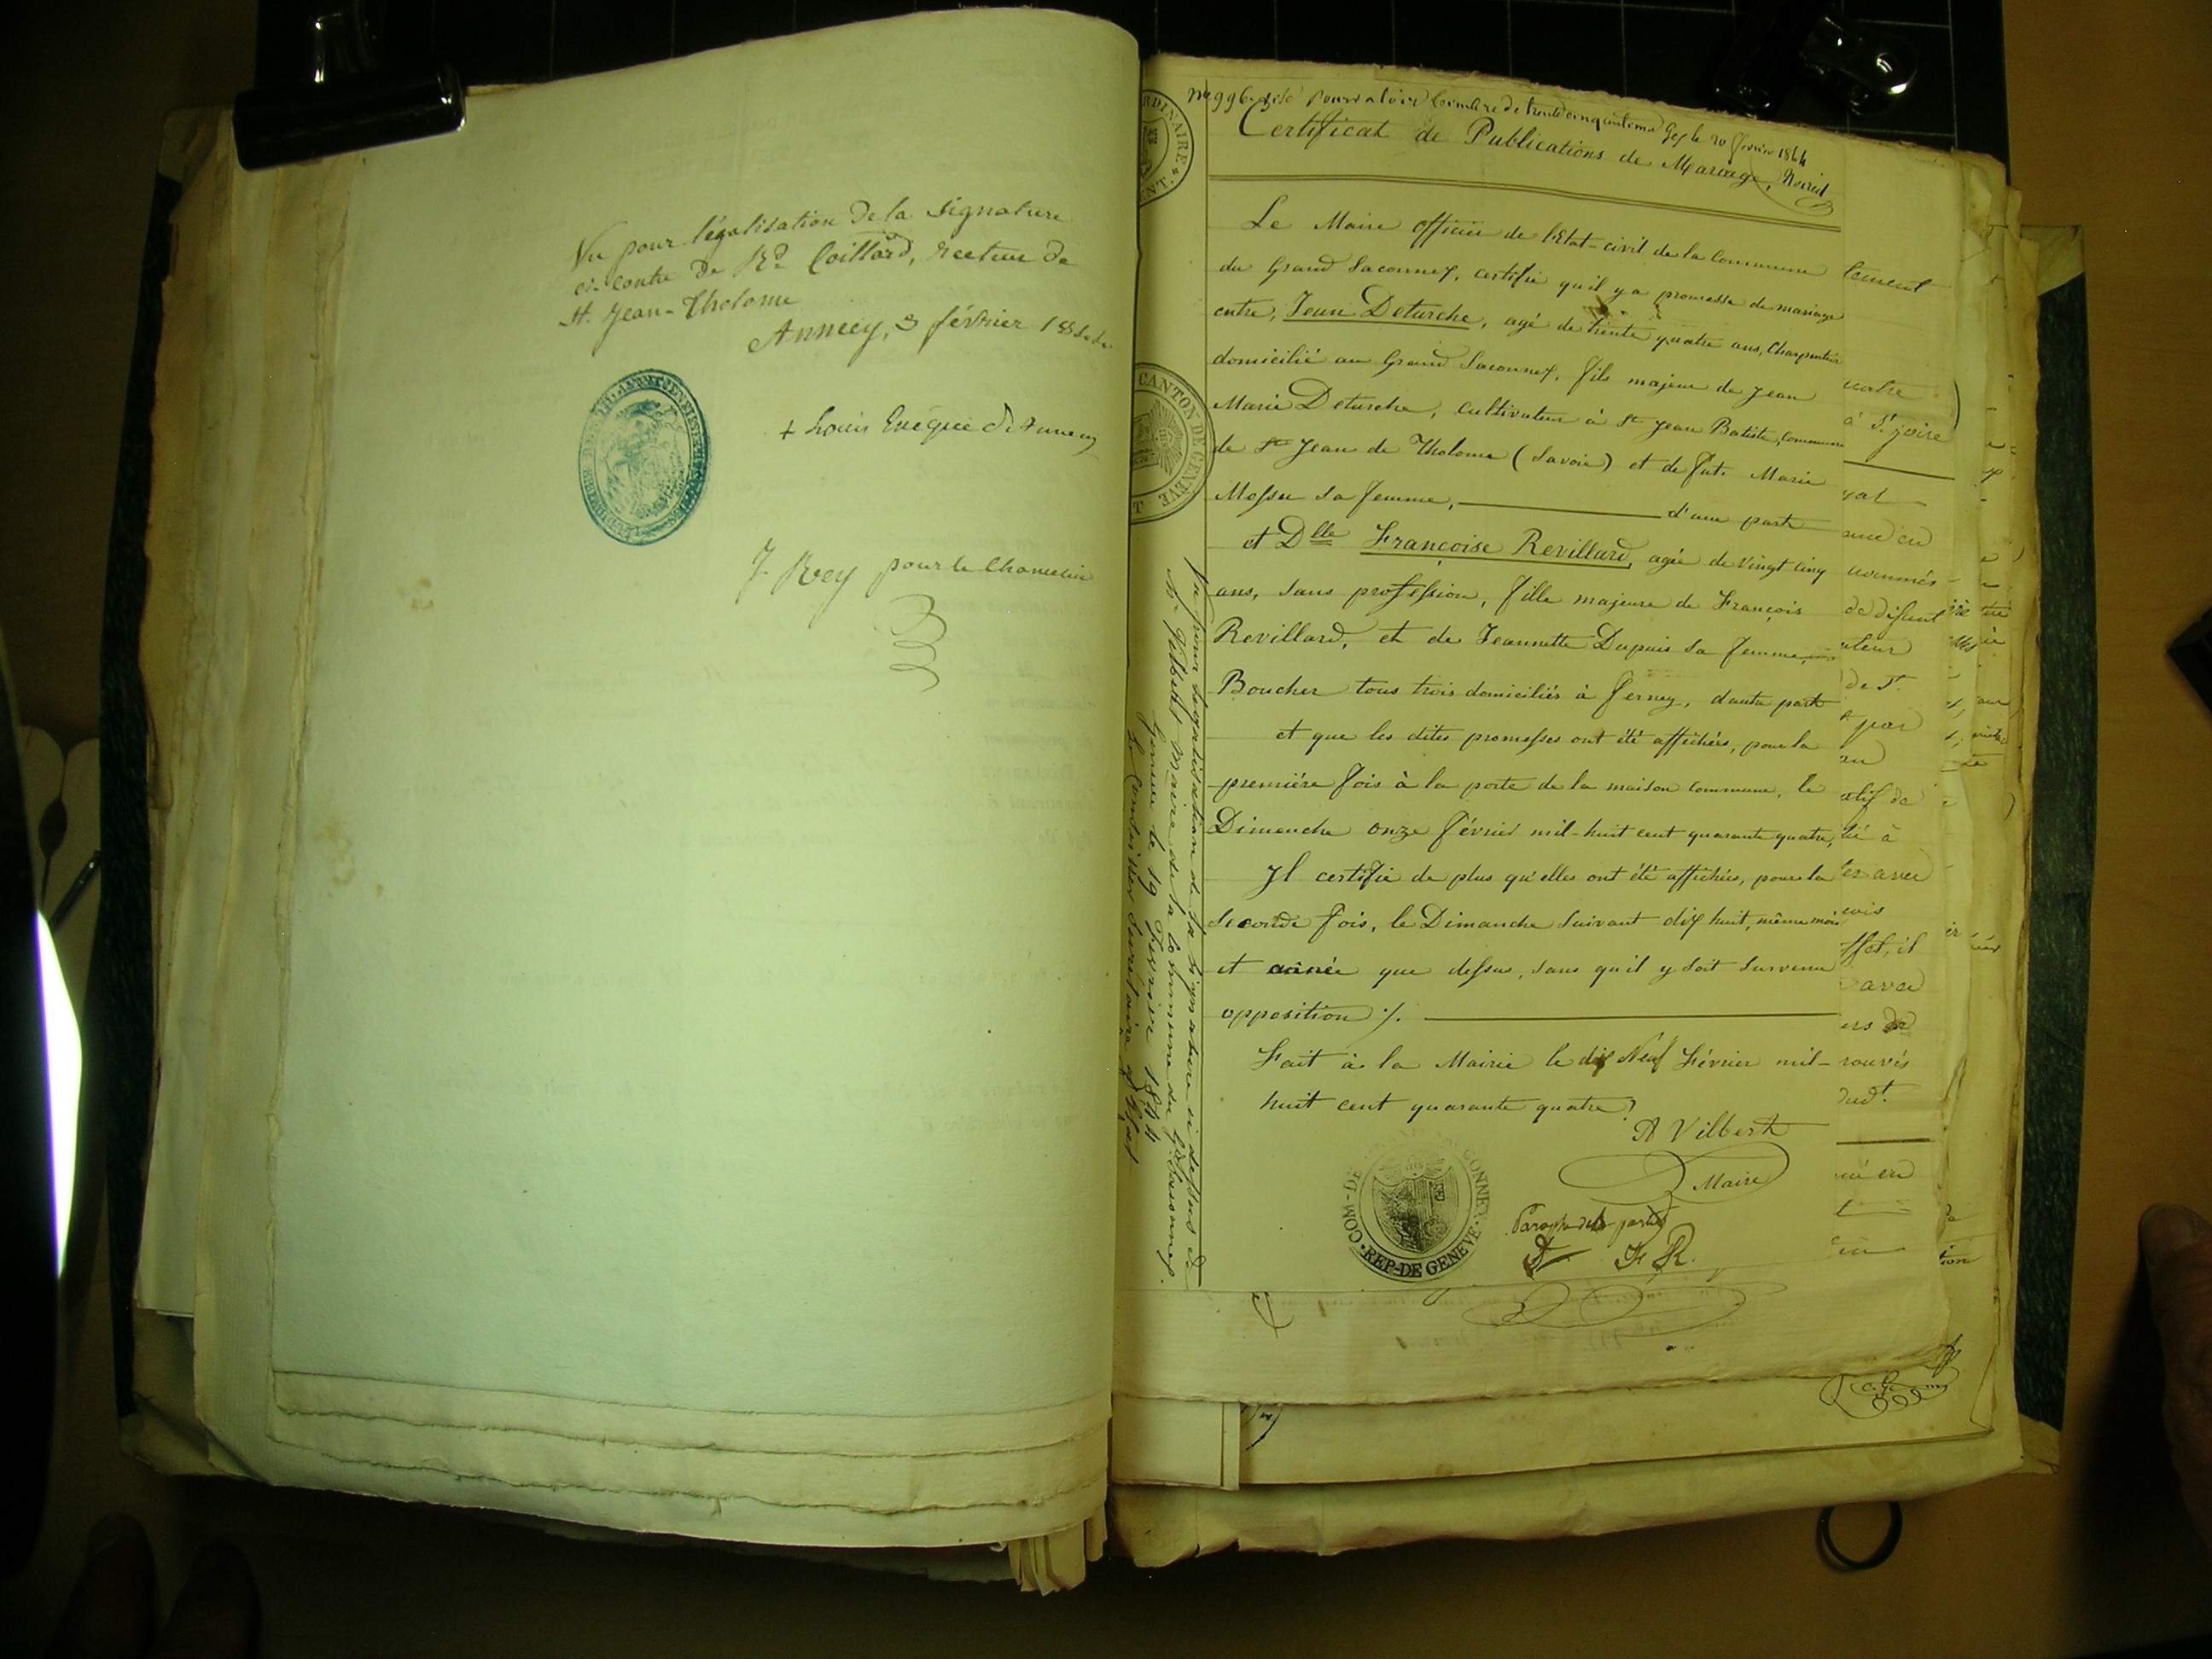 Vu pour légalisation de la signature
ci-contre de Rd. Coillard, recteur de
St. Jean-Tholome
Annecy, 3 février 1844
+ Louis Evêque d'Annecy
J. Rey pour le Chancelier
Certificat de Publications de Mariage,
Le Maire officier de l'Etat-civil de la Commune
du Grand Saconnex, certifie qu'il y a promesse de mariage
entre, Jean Deturche, agé de trente quatre ans, Charpentier
domicilié au Grand Saconnex, fils majeur de Jean
Marie Deturche, cultivateur à St Jean Batiste, Commune
de St Jean de Tholome (Savoie) et de fut. Marie
Mossu sa femme, d'une part
et Dlle Françoise Revillard, agée de vingt cinq
ans, sans profession, fille majeure de François
Revillard, et de Jeannette Dupuis sa femme,
Boucher tous trois domiciliés à Ferney, d'autre part
et que les dites promesses ont été affichées, pour la
première fois à la porte de la maison commune, le
Dimanche onze février mil-huit cent quarante quatre,
Il certifie de plus qu'elles ont été affichées, pour la
seconde fois, le Dimanche suivant dix huit, même mois
et année que dessus, sans qu'il y soit survenu
opposition ./.
Fait à la Mairie le dix Neuf Février mil-
huit cent quarante quatre.
A Vilbert
Maire
COM-DE CONNEX
REP-DE GENEVE
Paraphe des parties
F R.
CANTON DE GENEVE
Vu pour légalisation de la signature ci dessus de
Mr Vilbert Maire de la commune du Gd Saconnex.
Genève le 19 Février 1844